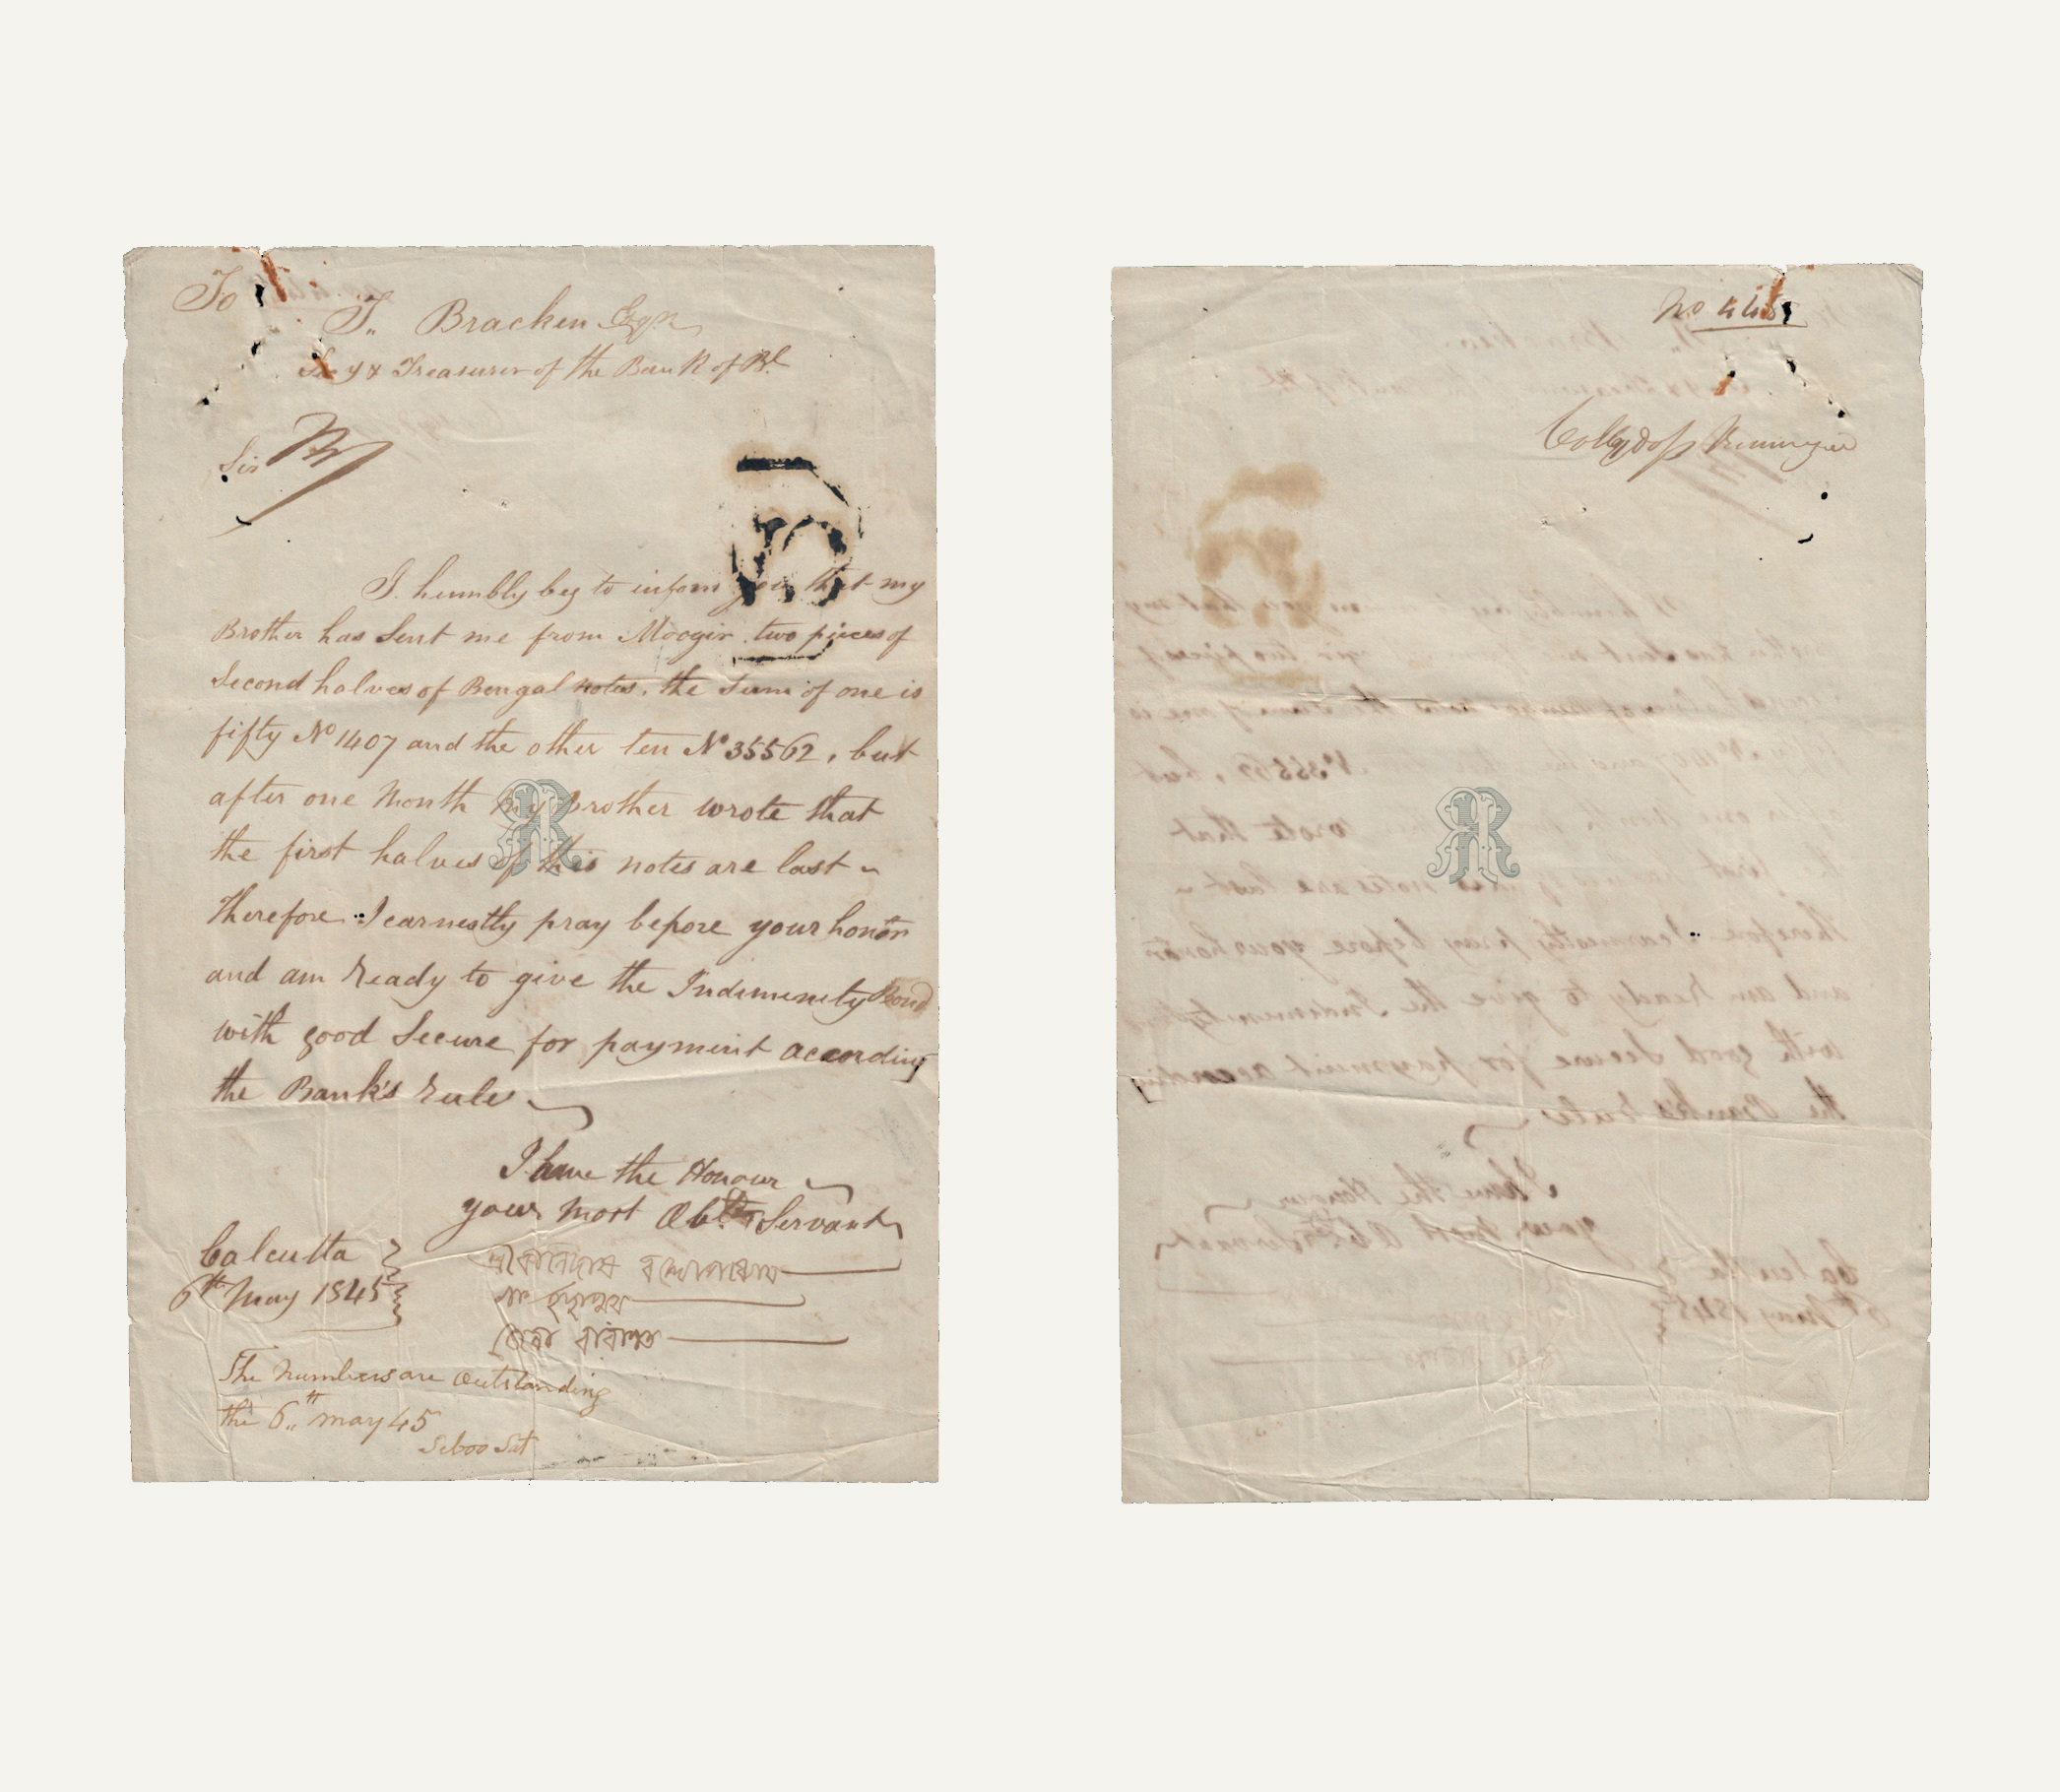 To
T,, Bracken Esqr
Secy & Treasurer of the Bank of Bl.
Sir
I humbly beg to inform you that my
Brother has Sent me from Moogir two pieces of
Second halves of Bengal notes, the Sum of one is
fifty No 1407 and the other ten No 35562, but
after one Month my brother wrote that
the first halves of this notes are lost
therefore I earnestly pray before your honor
and am ready to give the Indemenity Bond
with good Secure for payment according
the Bank's rules
I have the Honour
your most Obt. Servant
Calcutta
6th May 1845
শ্রীকালিদাষ বন্দোপাধ্যায়
The Numbers are Outstanding
the 6,,th may 45
Seboo Set
No 445
Collydoss